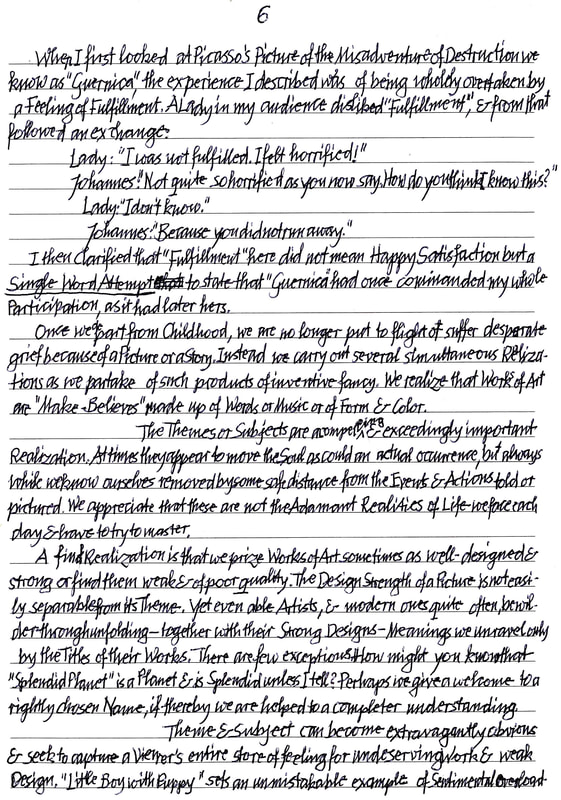 6
When I first looked at Picasso's Picture of the Misadventure of Destruction we
know as "Guernica", the experience I described was of being wholly overtaken by
a Feeling of Fulfillment. A Lady in my audience disliked "Fulfillment", & from that
followed an exchange:
Lady: "I was not fulfilled. I felt horrified!"
Johannes: "Not quite so horrified as you now say. How do you think I know this?"
Lady: "I don't know."
Johannes: "Because you did not run away."
I then clarified that "Fulfillment" here did not mean Happy Satisfaction but a
Single Word Attempt to state that "Guernica" had once commanded my whole
Participation, as it had later hers.
Once we part from Childhood, we are no longer put to flight or suffer desperate
grief because of a Picture or a Story. Instead we carry out several simultaneous Realiza-
tions as we partake of such products of inventive fancy. We realize that Works of Art
are "Make-Believes" made up of Words or Music or of Form & Color.
The Themes or Subjects are a compelling & exceedingly important
Realization. At times they appear to move the Soul as could an actual occurrence, but always
while we know ourselves removed by some safe distance from the Events & Actions told or
pictured. We appreciate that these are not the Adamant Realities of Life we face each
day & have to try to master.
A final Realization is that we prize Works of Art sometimes as well-designed &
strong or find them weak & of poor quality. The Design Strength of a Picture is not easi-
ly separable from its Theme. Yet even able Artists, & modern ones quite often, bewil-
der through unfolding–together with their Strong Designs–Meanings we unravel only
by the Titles of their Works. There are few exceptions. How might you know that
"Splendid Planet" is a Planet & is Splendid unless I tell? Perhaps we give a welcome to a
rightly chosen Name, if thereby we are helped to a completer understanding
Theme & Subject can become extravagantly obvious
& seek to capture a Viewer's entire store of feeling for undeserving Work & weak
Design. "Little Boy with Puppy" sets an unmistakable example of Sentimental Overload